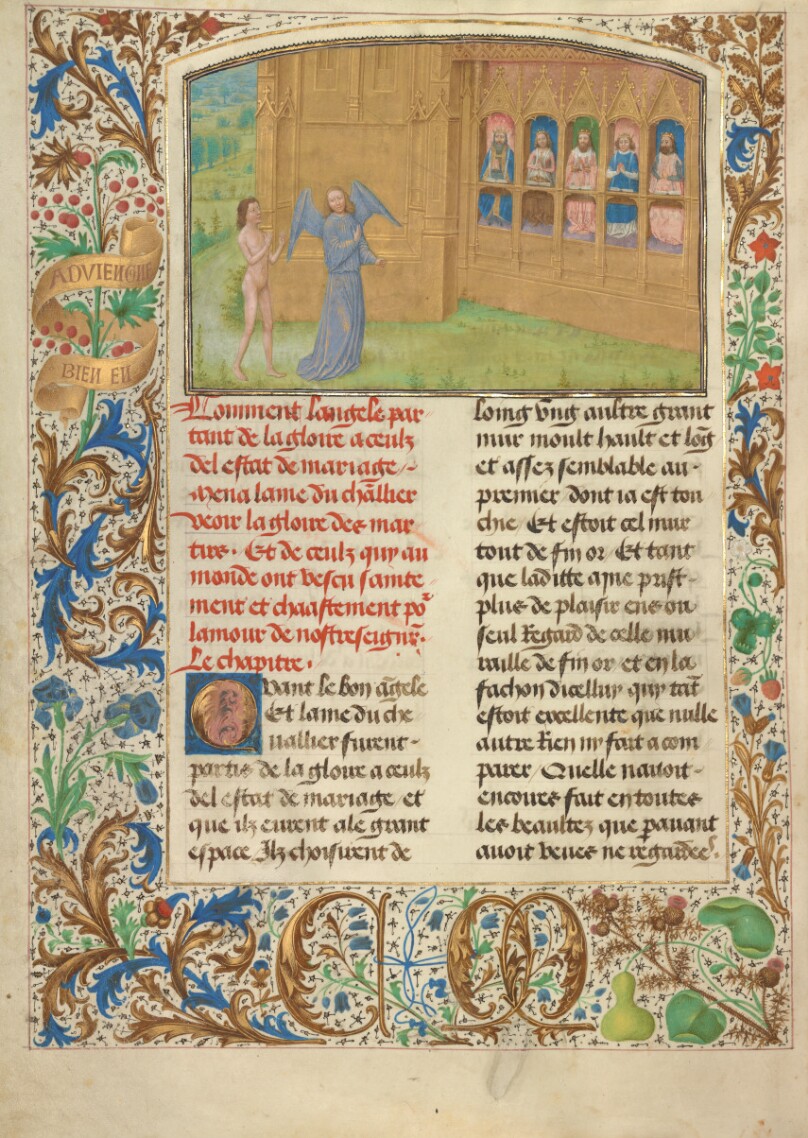 ADVIENGNE
BIEN EN
Comment langele par
tant de la gloire a ceulx
del estat de mariage /
mena lame du chãllier
veoir la gloire des mar
tirs . Et de ceulz quy au
monde ont vescu sainte
ment et chaastement põ
lamour de nostreseignr̃ .
Le chapitre .
Quant le bon ãgele
Et lame du che
uallier furent -
partis de la gloire a ceulx
del estat de mariage / et
que ilz eurent ale grant
espace Ilz choisirent de
loing vng aultre grant
mur moult hault et lõg
et assez semblable au -
premier dont ia est tou
chie / Et estoit cel mur
tout de fin or / Et tant
que laditte ame prist -
plus de plaisir ens ou
seul Regard de celle mu
raille de fin or et en la
fachon dicelluy quy tãt
estoit excellente que nulle
autre Rien ny fait a com
parer / Quelle nauoit -
encoires fait en toutes
les beaultez que p̃auant
auoit veues ne regardees .
C M